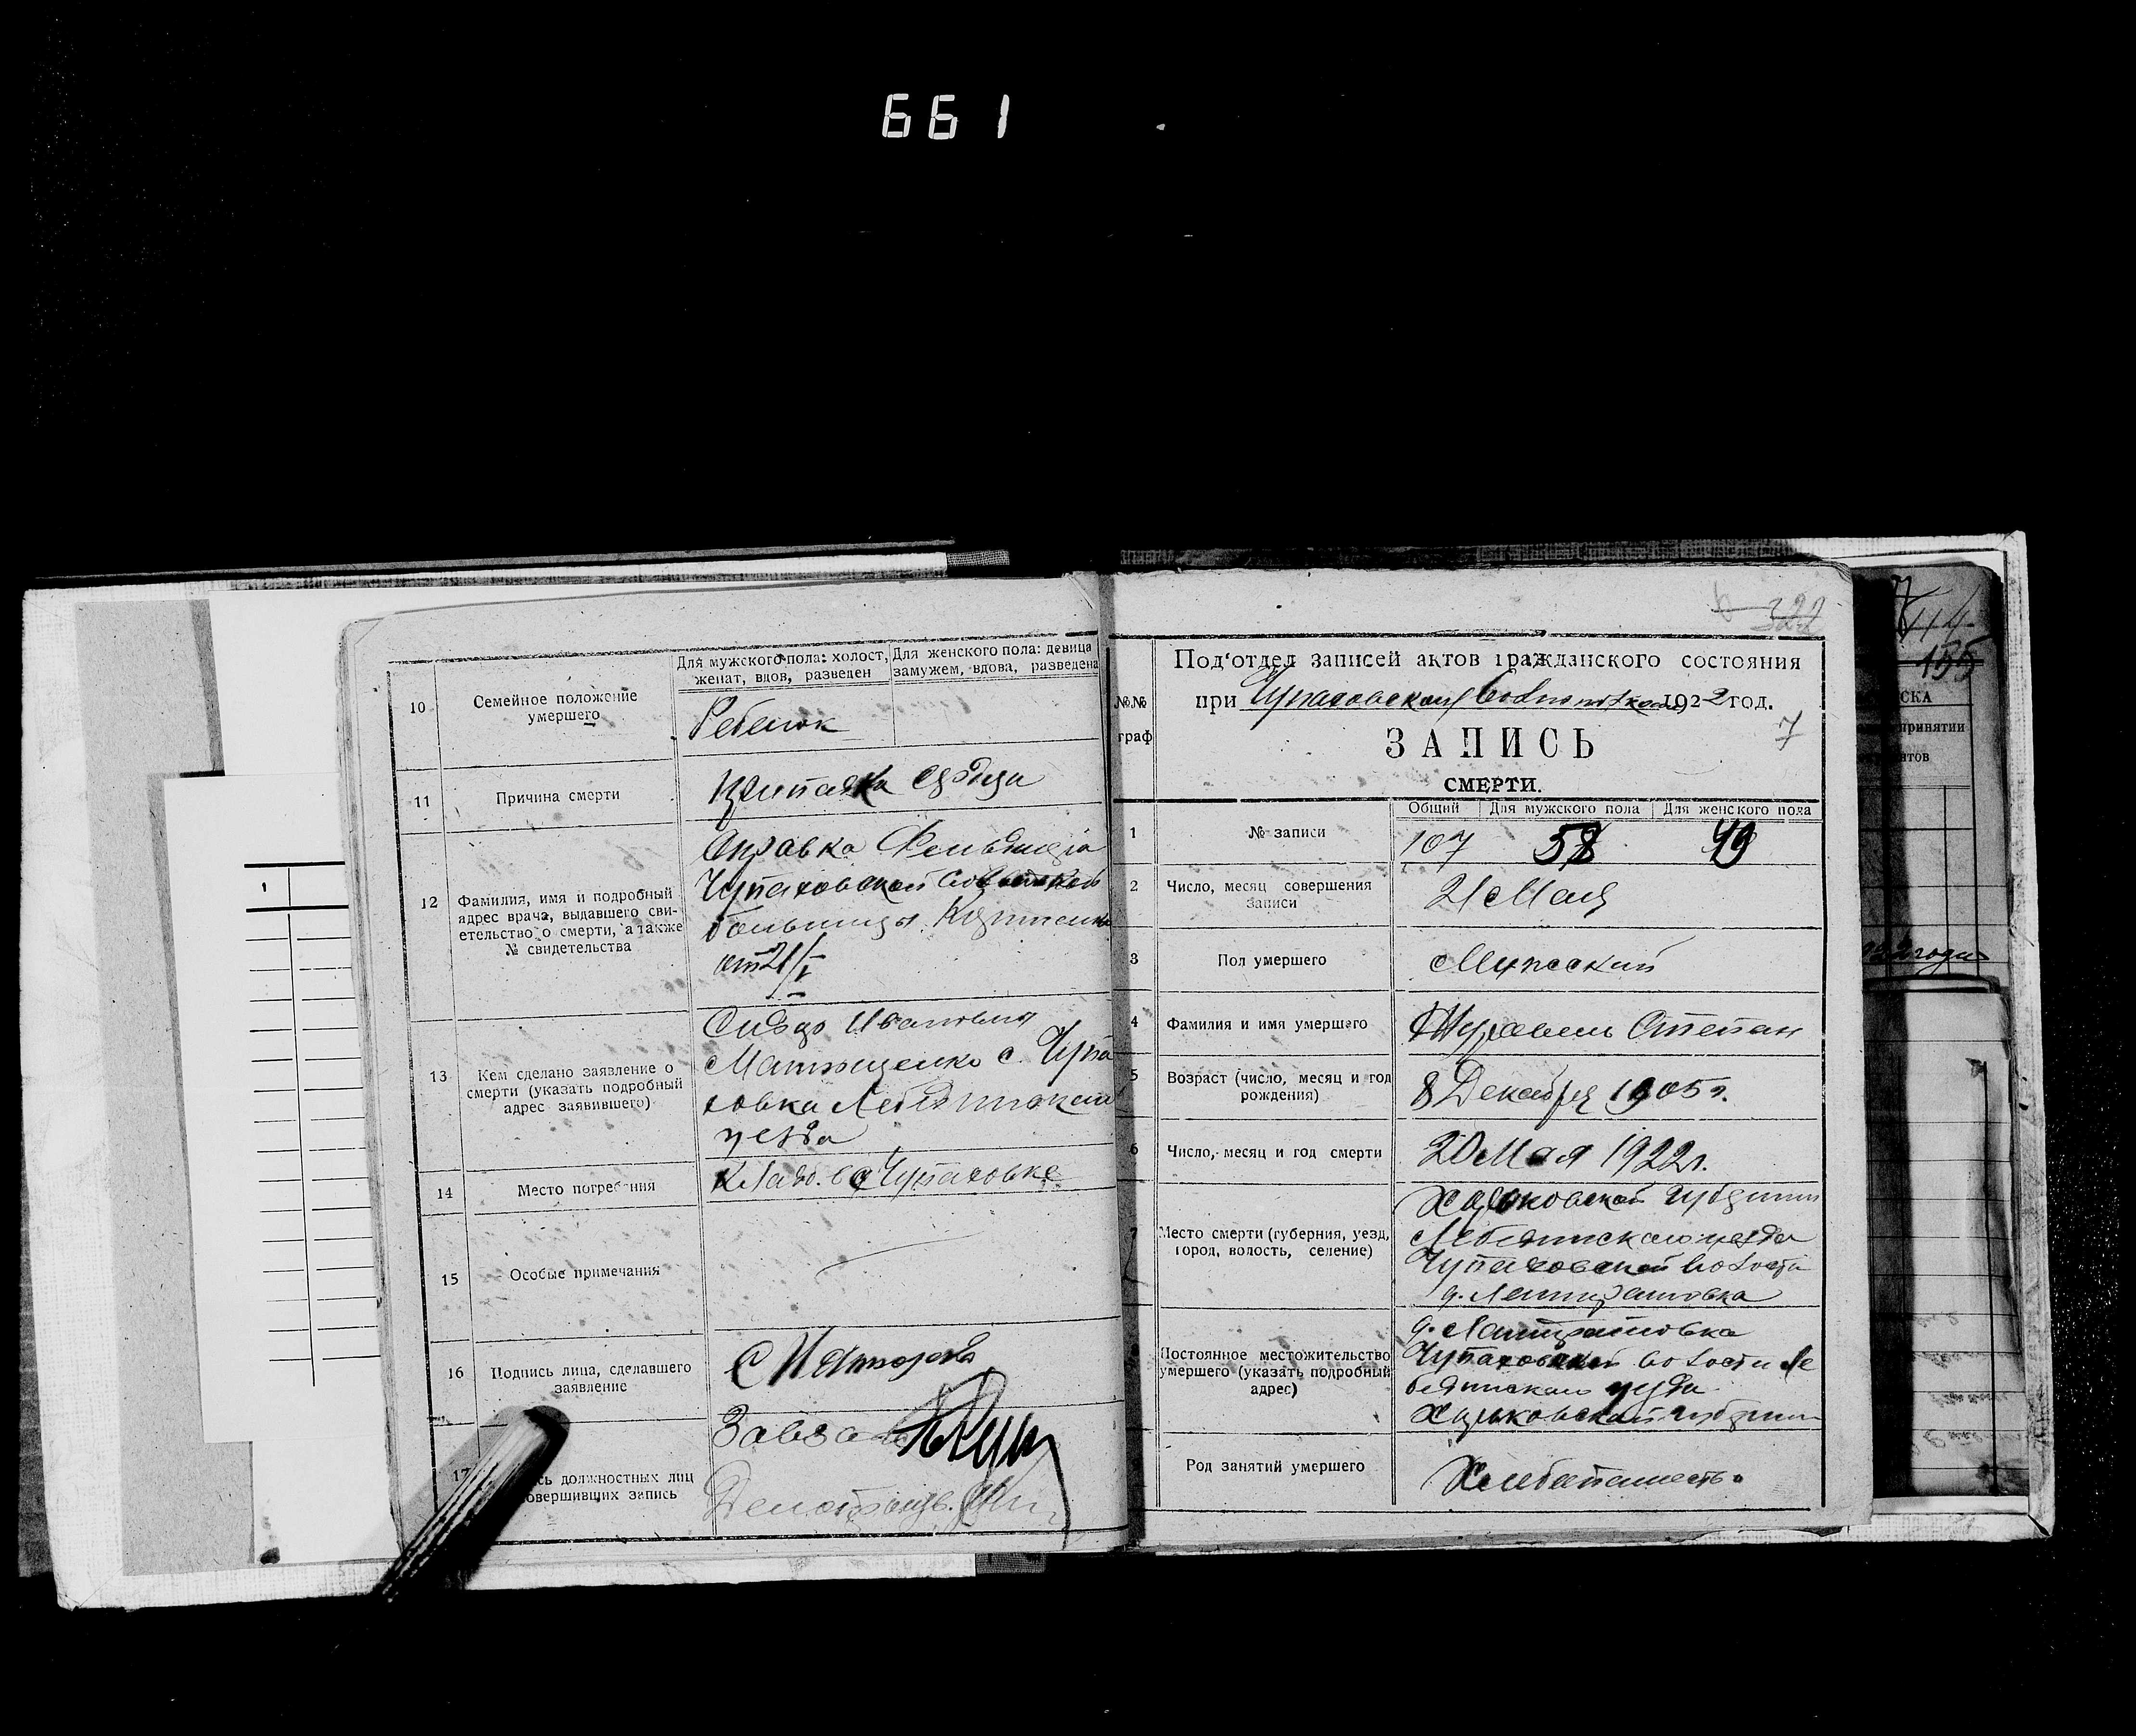 661
10
Семейное положение
умершего
Для мужского пола: холост,
женат, вдов, разведен
Для женского пола: девица
замужем, вдова, разведена
Ребенок
11
Причина смерти
12
Фамилия, имя и подробный
адрес врача, выдавшего сви-
етельство о смерти, а также
№ свидетельства
Справка Фельдшера
Чупаховской
больницы
от 21/V
13
Кем сделано заявление о
смерти (указать подробный
адрес заявившего)
Ивановна
с. Чупа
ховка Лебединского
уезда
14
Место погребения
Клад. с Чупаховке
15
Особые примечания
16
Подпись лица, сделавшего
заявление
17
сь должностных лиц
овершивших запись
322
№№
граф
Под'отдел записей актов гражданского состояния
при Чупаховском 1922 год.
7
ЗАПИСЬ
СМЕРТИ.
Общий
Для мужского пола
Для женского пола
1
№ записи
107
58
49
2
Число, месяц совершения
записи
21 Мая
3
Пол умершего
Мужской
4
Фамилия и имя умершего
Журавель Степан
5
Возраст (число, месяц и год
рождения)
8 Декабря 1905 г.
6
Число, месяц и год смерти
20 Мая 1922 г.
7
Место смерти (губерния, уезд,
город, волость, селение)
Харьковской губернии
Лебединского уезда
Чупаховской волости
Постоянное местожительство
умершего (указать подробный
адрес)
Чупаховской волости Ле
бединского уезда
Харьковской губернии
Род занятий умершего
Хлебопашество
155
СКА
принятии
нтов